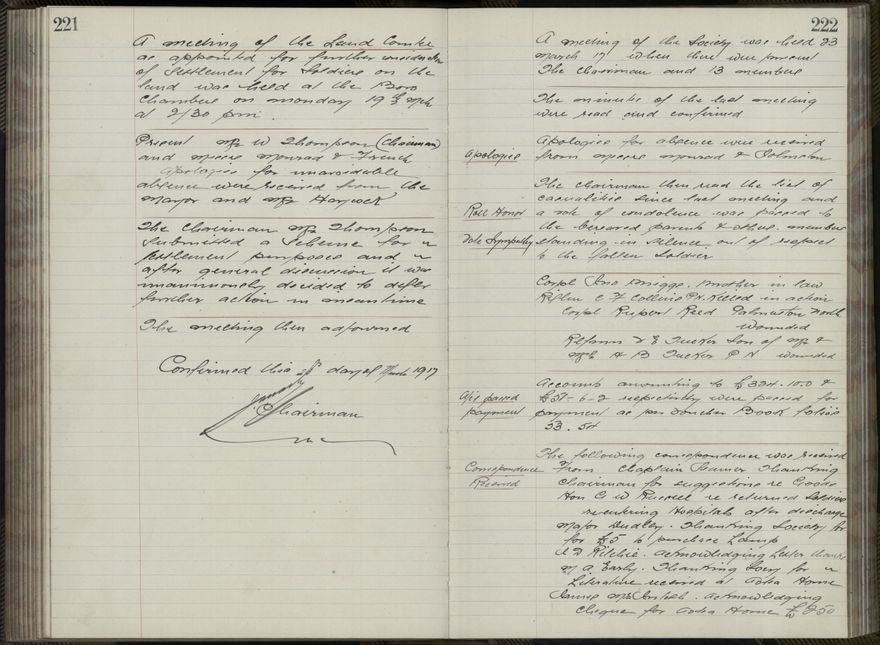 221
A meeting of the Land Comtee
as appointed for further consideration
of Settlement for Soldiers on the
land was held at the Boro
Chambers on monday 19th
at 2/30 pm.
Present Mr W Thompson (Chairman)
and messrs monrad & French
Apologies for unavoidable
absence were received from the
Mayor and Mr Haycock
The Chairman Mr Thompson
submitted a Scheme for
Settlement purposes and
after general discussion it was
unanimously decided to defer
further action in meantime
The meeting then adjourned
Confirmed this day of March 1917
Chairman
222
A meeting of the Society was held 23
March 17 when there were present
The Chairman and 13 members
The minutes of the last meeting
were read and confirmed
Apologies for absence were received
Apologies from messrs monrad & Johnston
The Chairman then read the list of
casualities since last meeting and
Roll Honor a vote of condolence was passed to
the bereaved parents & others. members
Vote Sympathy standing in silence out of respect
to the fallen Soldier
Corpl Jno in law
Riflm C F Collins P.N. Killed in action
Corpl Rupert Reed Palmerston North
wounded
Tucker Son of Mr &
Mrs A B Tucker P N wounded
Accounts amounting to £324.10.0 &
A/cs passed £37-6-2 respectively were passed for
payment payment as per Voucher Book folios
53.54
The following correspondence was received
Correspondence From Chaplain thanking
Received Chairman for suggestions re Goods
Hon G W Russell re returned Soldiers
reentering Hospitals after discharge
Major Dudley. Thanking Society for
for £5 to purchase Lamp
Ritchie. acknowledging Letter thanks
M A Early. Thanking Socy for
Literature received at Home
acknowledging
Cheque for Home £250